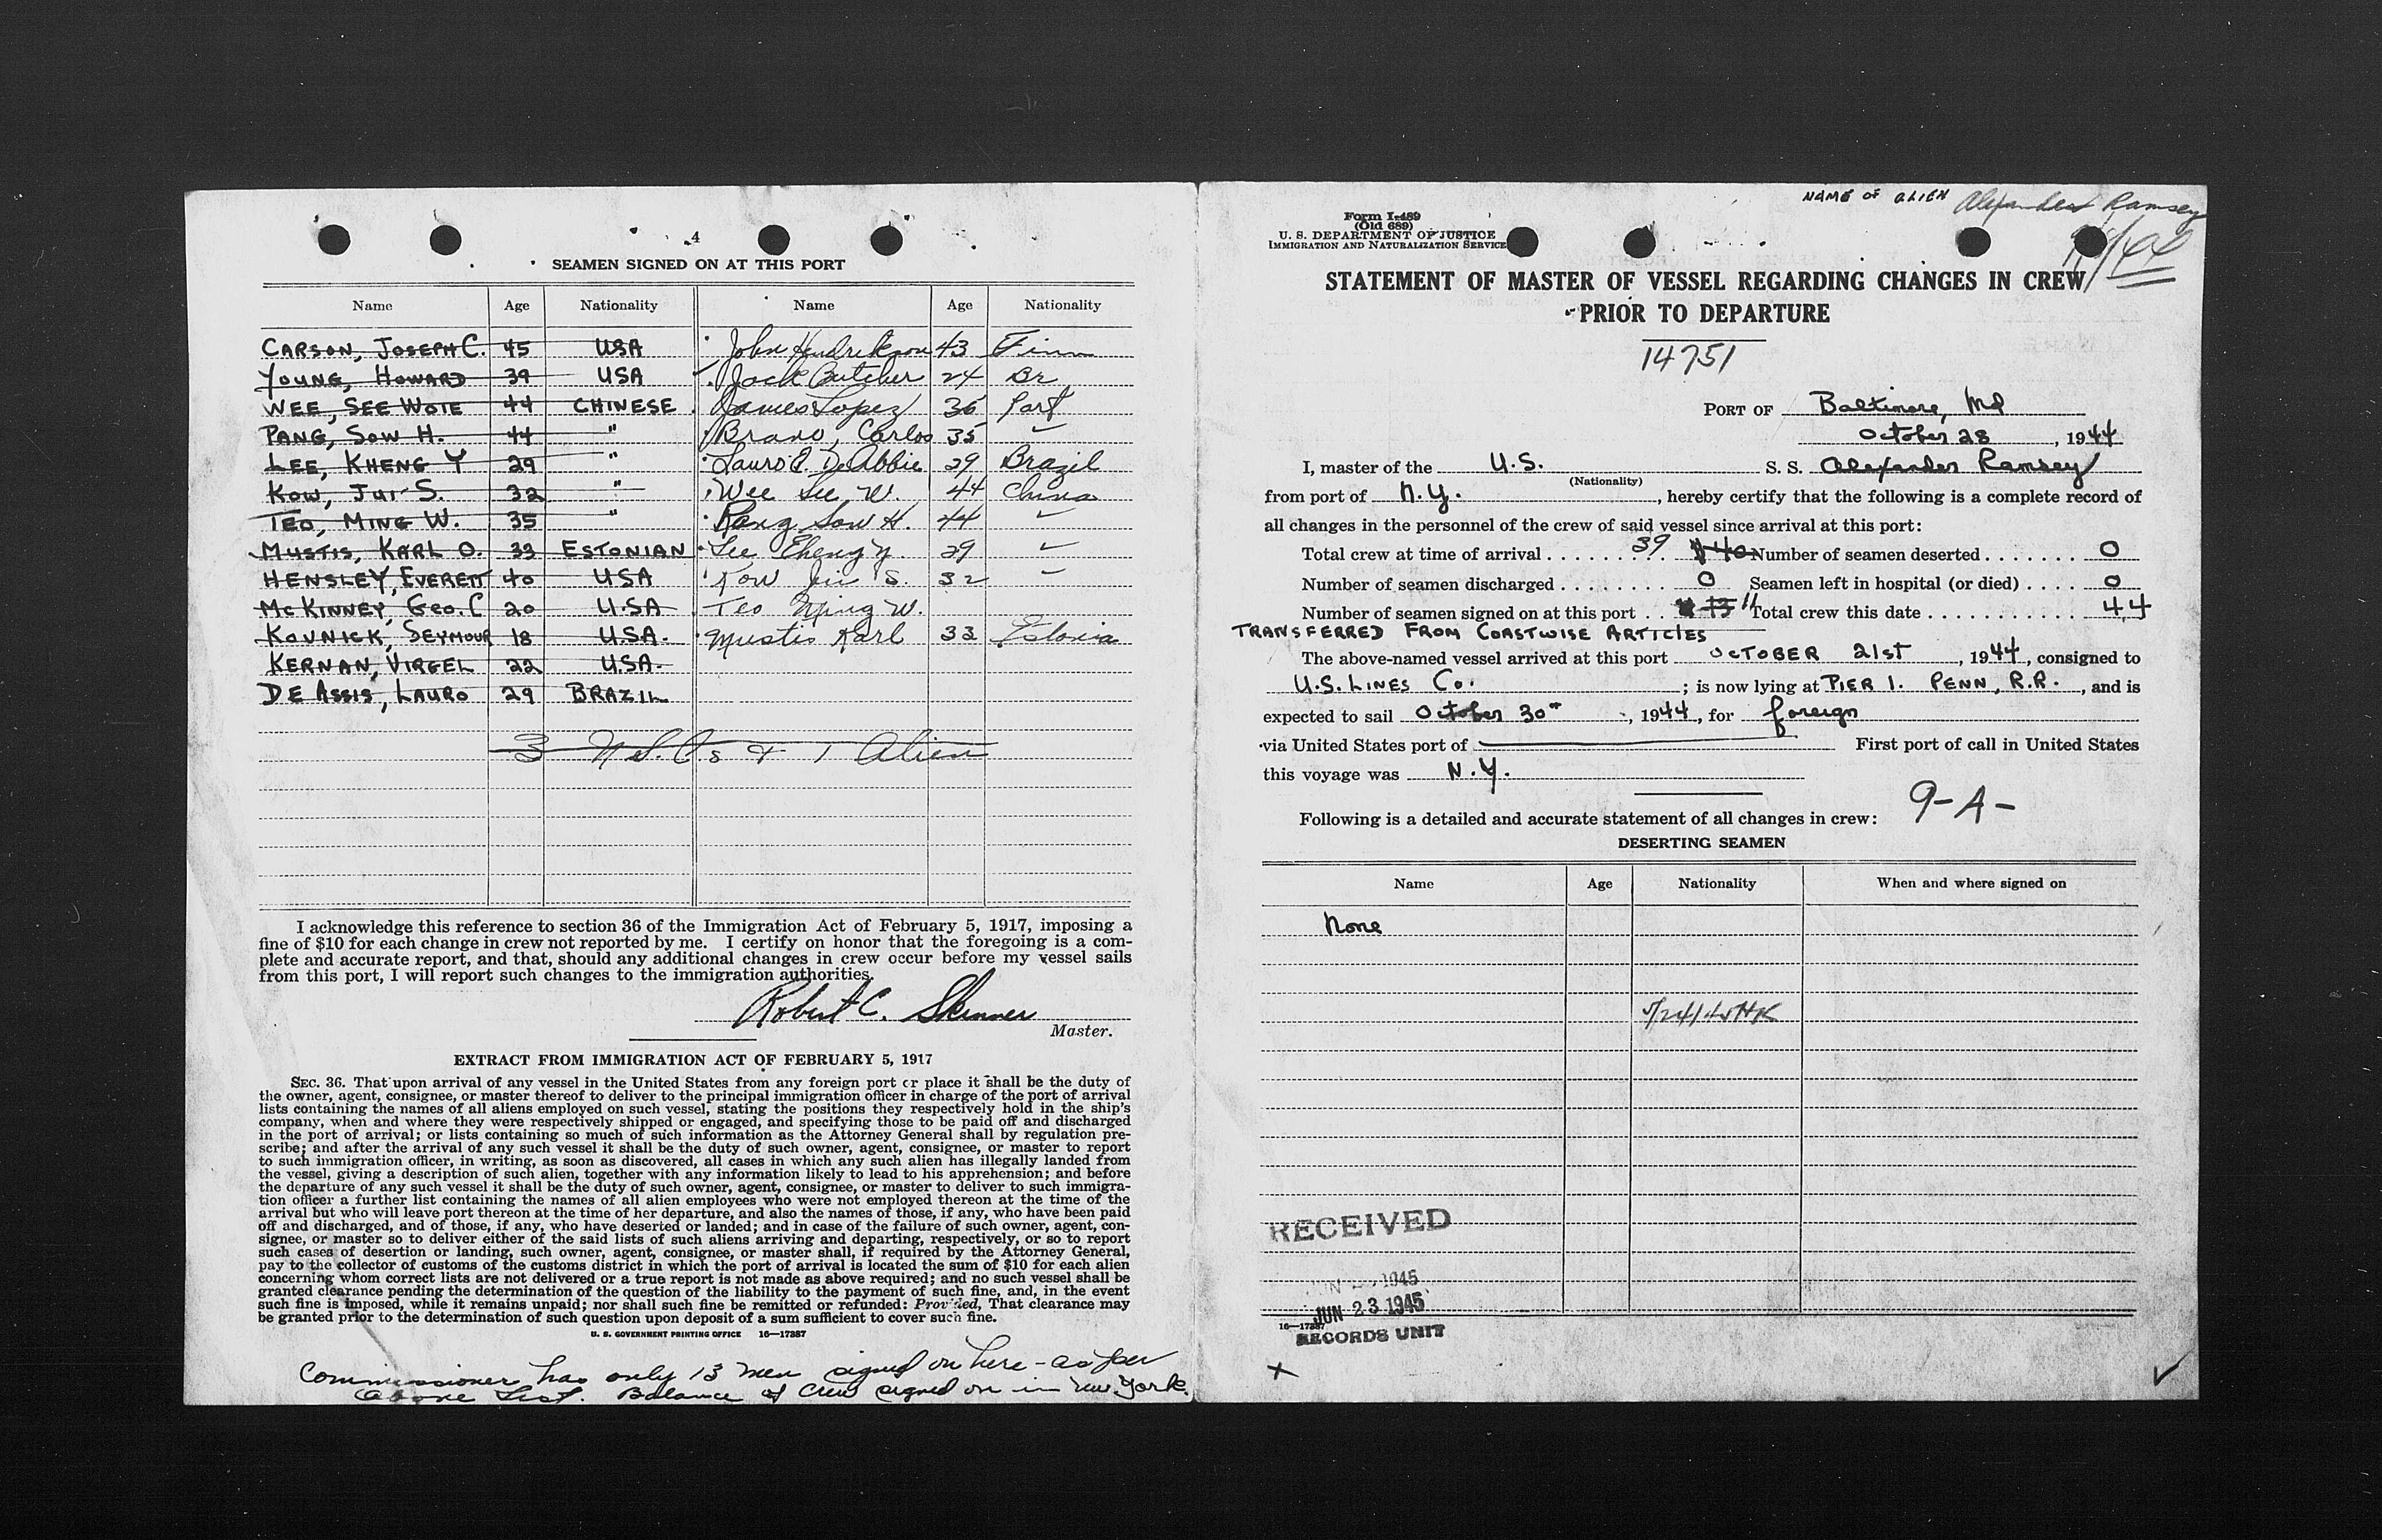 4
SEAMEN SIGNED ON AT THIS PORT
Name Age Nationality Name Age Nationality
CARSON, JOSEPH C. 45 USA John Hendrikson 43 Finn
YOUNG, HOWARD 39 USA Jack Butcher 24 Br
WEE, SEE WOTE 44 CHINESE James Lopez 36 Port
PANG, SOW H. 44 " Bravo, Carlos 35 "
LEE, KHENG Y 29 " Lauro 29 Brazil
KOW, JUI S. 32 " Wee See W. 44 China
TEO, MING W. 35 " Pang Sow H. 44 "
MUSTIS, KARL O. 33 ESTONIAN Lee Kheng Y. 29 "
HENSLEY, EVERETT 40 USA Kow Jui S. 32 "
McKINNEY, GEO. C 20 U.SA Teo Ming W.
KOVNICK, SEYMOUR 18 U.S.A. Mustis Karl 33 Estonia
KERNAN, VIRGEL 22 U.SA.
DE ASSIS, LAURO 29 BRAZIL
3 & 1 Alien
I acknowledge this reference to section 36 of the Immigration Act of February 5, 1917, imposing a
fine of $10 for each change in crew not reported by me. I certify on honor that the foregoing is a com-
plete and accurate report, and that, should any additional changes in crew occur before my vessel sails
from this port, I will report such changes to the immigration authorities.
Robert C. Skinner
Master.
EXTRACT FROM IMMIGRATION ACT OF FEBRUARY 5, 1917
SEC. 36. That upon arrival of any vessel in the United States from any foreign port or place it shall be the duty of
the owner, agent, consignee, or master thereof to deliver to the principal immigration officer in charge of the port of arrival
lists containing the names of all aliens employed on such vessel, stating the positions they respectively hold in the ship's
company, when and where they were respectively shipped or engaged, and specifying those to be paid off and discharged
in the port of arrival; or lists containing so much of such information as the Attorney General shall by regulation pre-
scribe; and after the arrival of any such vessel it shall be the duty of such owner, agent, consignee, or master to report
to such immigration officer, in writing, as soon as discovered, all cases in which any such alien has illegally landed from
the vessel, giving a description of such alien, together with any information likely to lead to his apprehension; and before
the departure of any such vessel it shall be the duty of such owner, agent, consignee, or master to deliver to such immigra-
tion officer a further list containing the names of all alien employees who were not employed thereon at the time of the
arrival but who will leave port thereon at the time of her departure, and also the names of those, if any, who have been paid
off and discharged, and of those, if any, who have deserted or landed; and in case of the failure of such owner, agent, con-
signee, or master so to deliver either of the said lists of such aliens arriving and departing, respectively, or so to report
such cases of desertion or landing, such owner, agent, consignee, or master shall, if required by the Attorney General,
pay to the collector of customs of the customs district in which the port of arrival is located the sum of $10 for each alien
concerning whom correct lists are not delivered or a true report is not made as above required; and no such vessel shall be
granted clearance pending the determination of the question of the liability to the payment of such fine, and, in the event
such fine is imposed, while it remains unpaid; nor shall such fine be remitted or refunded: Provided, That clearance may
be granted prior to the determination of such question upon deposit of a sum sufficient to cover such fine.
U. S. GOVERNMENT PRINTING OFFICE 16—17387
Commissioner has only 13 men signed on here - as per
above List. Balance of Crew signed on in New York.
NAME OF ALIEN Alexander Ramsey
Form I-489
(Old 689)
U. S. DEPARTMENT OF JUSTICE
IMMIGRATION AND NATURALIZATION SERVICE
STATEMENT OF MASTER OF VESSEL REGARDING CHANGES IN CREW
PRIOR TO DEPARTURE
14751
PORT OF Baltimore, Md
October 28, 1944
I, master of the U.S. S. S. Alexander Ramsey
(Nationality)
from port of N.Y., hereby certify that the following is a complete record of
all changes in the personnel of the crew of said vessel since arrival at this port:
Total crew at time of arrival 39 40 Number of seamen deserted 0
Number of seamen discharged 0 Seamen left in hospital (or died) 0
Number of seamen signed on at this port 13 11 Total crew this date 44
TRANSFERRED FROM COASTWISE ARTICLES
The above-named vessel arrived at this port OCTOBER 21st, 1944, consigned to
U.S. LINES Co.; is now lying at PIER 1. PENN, R.R., and is
expected to sail October 30th, 1944, for foreign
via United States port of First port of call in United States
this voyage was N.Y.
9-A-
Following is a detailed and accurate statement of all changes in crew:
DESERTING SEAMEN
Name Age Nationality When and where signed on
None
RECEIVED
1945
JUN 23 1945
16—17387
RECORDS UNIT